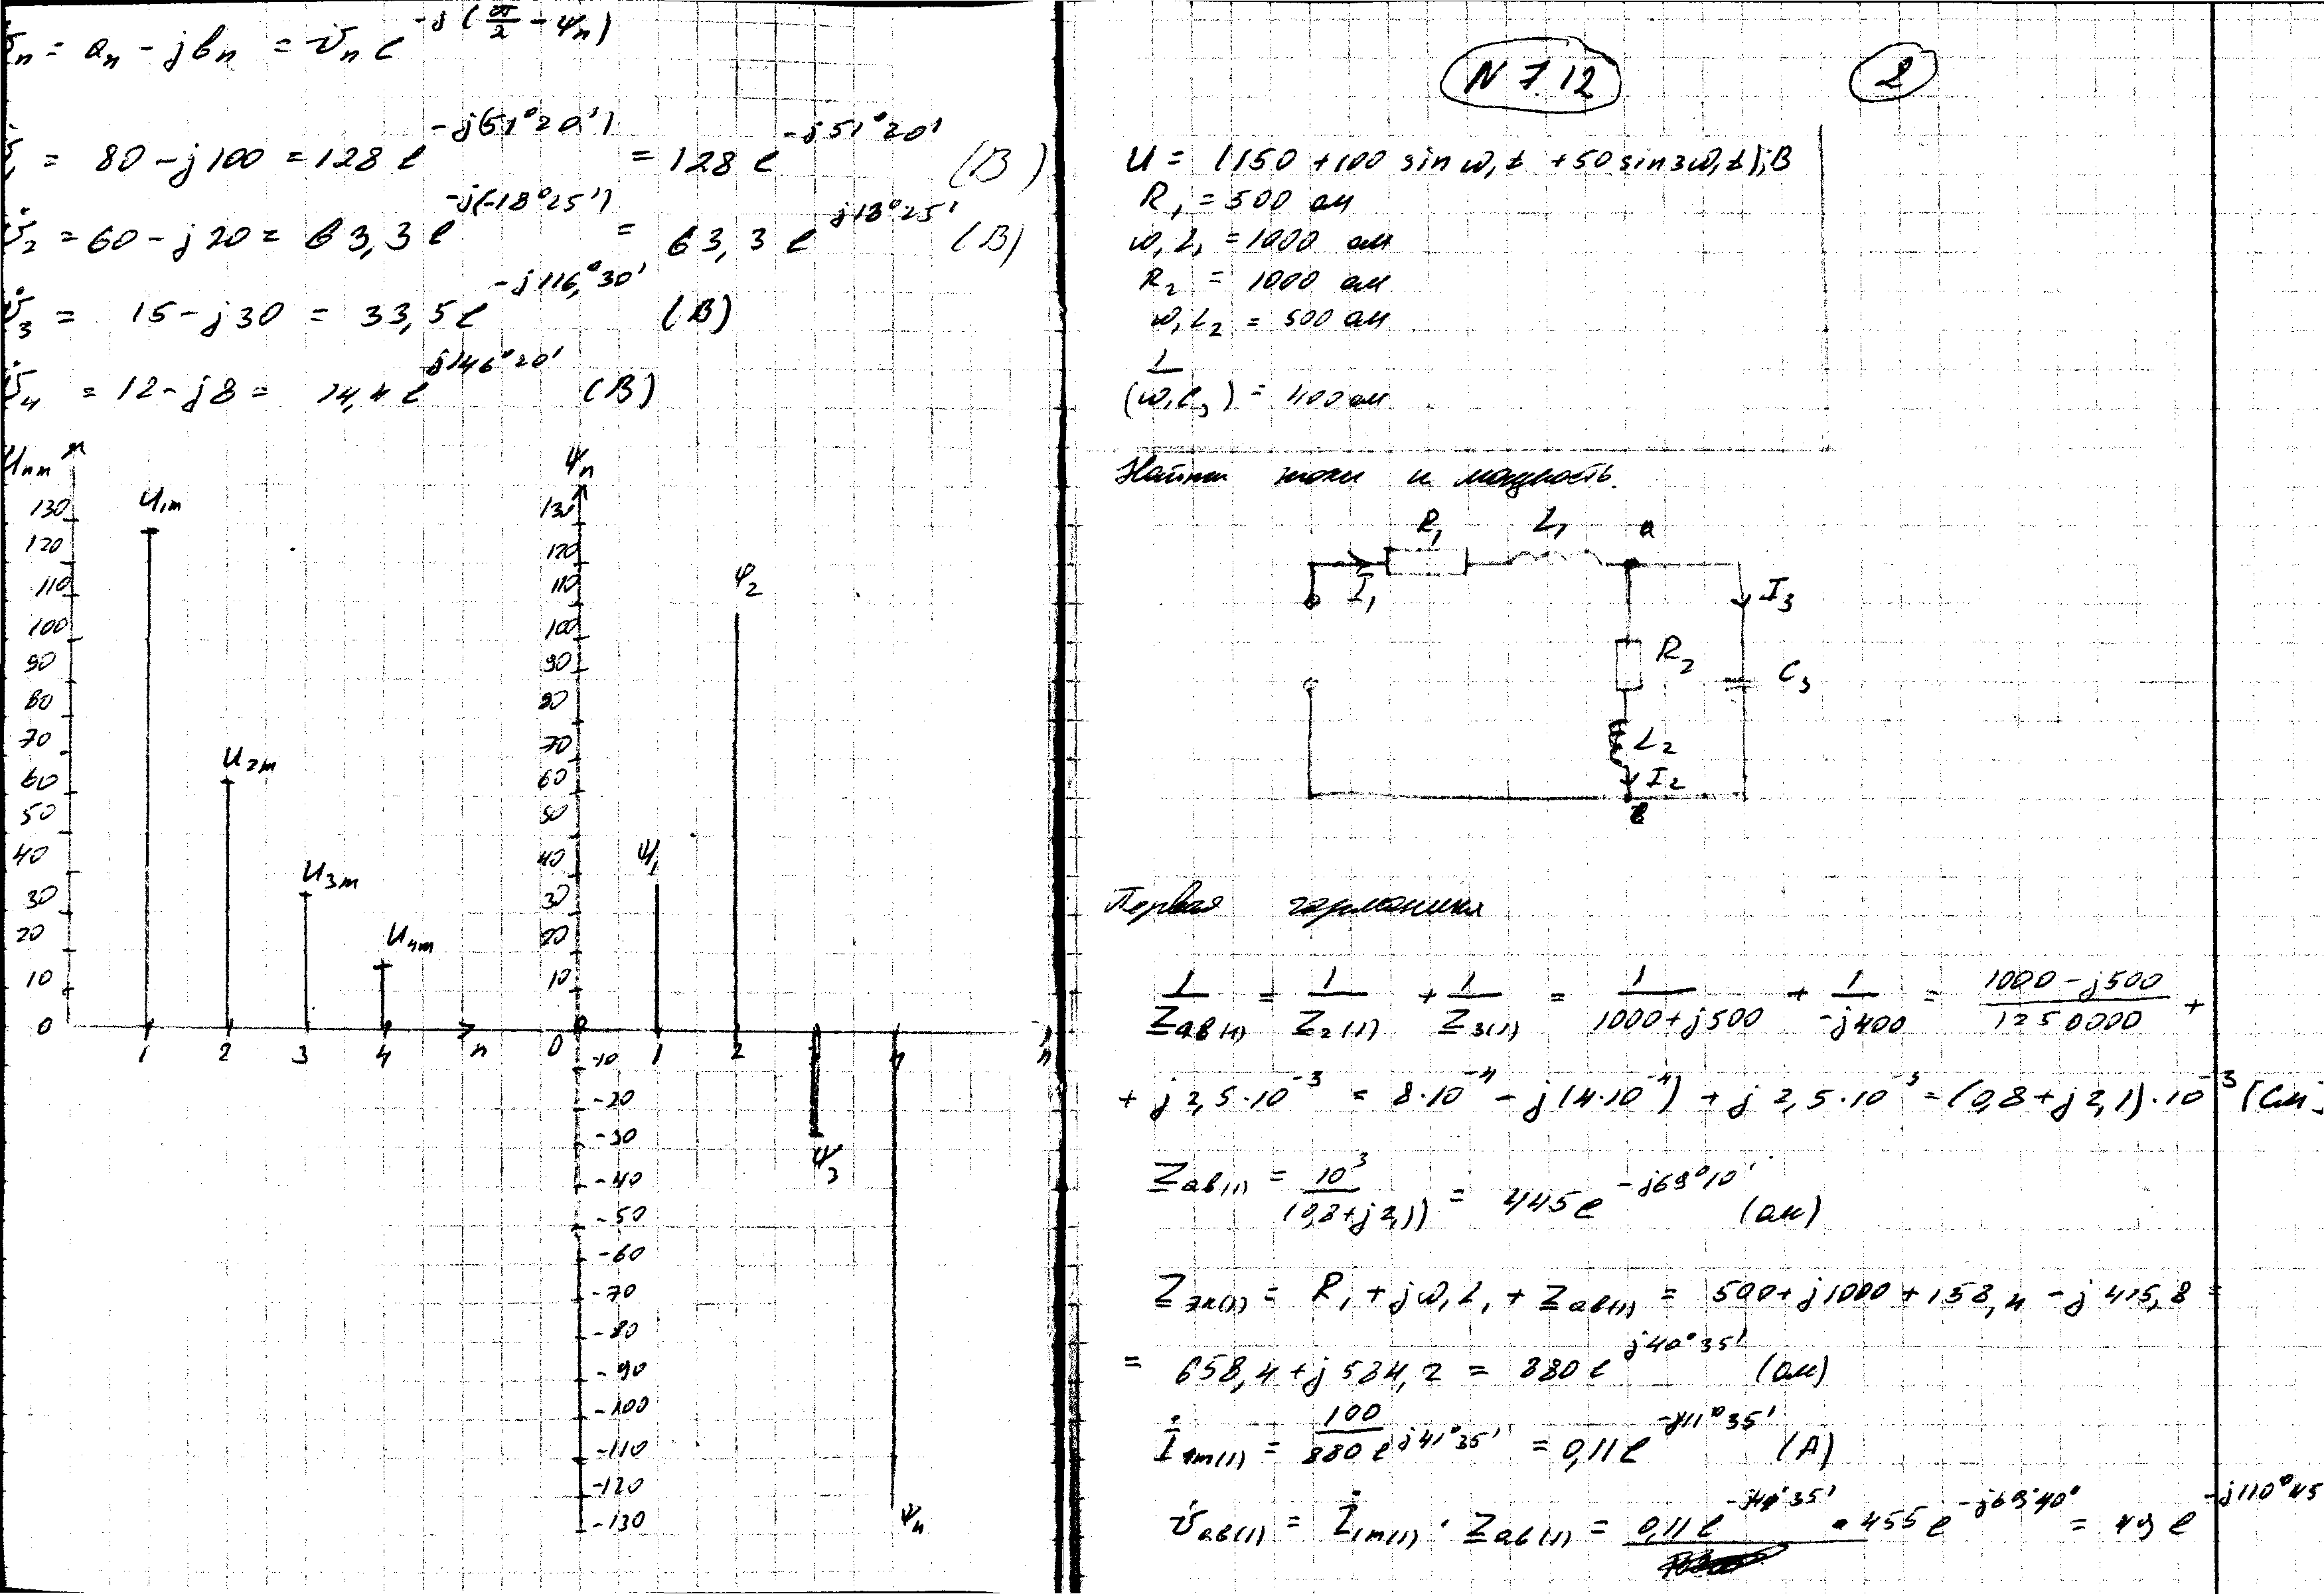 U̇n = an - jвn = U̇n e^-j(π/2 - ψn)
= 80 - j100 = 128 e^-j(51°20') = 128 e^-j51°20' (В)
U̇2 = 60 - j20 = 63,3 e^-j(-18°25') = 63,3 e^j18°25' (В)
U̇3 = 15 - j30 = 33,5 e^-j116,°30' (В)
U̇4 = 12 - j8 = 14,4 e^j146°20' (В)
Unm
130
120
110
100
90
80
70
60
50
40
30
20
10
0
U1m
U2m
U3m
U4m
1 2 3 4 n
ψn
130
120
110
100
90
80
70
60
50
40
30
20
10
0
-10
-20
-30
-40
-50
-60
-70
-80
-90
-100
-110
-120
-130
ψ1
ψ2
ψ3
ψ4
1 2 4 n
N 7.12
2
U = (150 + 100 sin ω1t + 50 sin 3ω1t); В
R1 = 500 ом
ω1L1 = 1000 ом
R2 = 1000 ом
ω1L2 = 500 ом
1/(ω1C3) = 400 ом
Найти токи и мощность.
R1 L1 a
I1 I3
R2 C3
L2
I2
в
Первая гармоника
1/Zав(1) = 1/Z2(1) + 1/Z3(1) = 1/(1000+j500) + 1/(-j400) = (1000-j500)/1250000 +
+ j2,5·10^-3 = 8·10^-4 - j(4·10^-4) + j2,5·10^-3 = (0,8+j2,1)·10^-3 [См]
Zав(1) = 10^3/(0,8+j2,1) = 445 e^-j69°10' (ом)
Zэк(1) = R1 + jω1L1 + Zав(1) = 500 + j1000 + 158,4 - j415,8 =
= 658,4 + j584,2 = 880 e^j40°35' (ом)
İ1m(1) = 100/(880 e^j41°35') = 0,11 e^-j41°35' (А)
U̇ав(1) = İ1m(1) · Zав(1) = 0,11 e^-j41°35' · 455 e^-j69°40° = 49 e^-j110°45